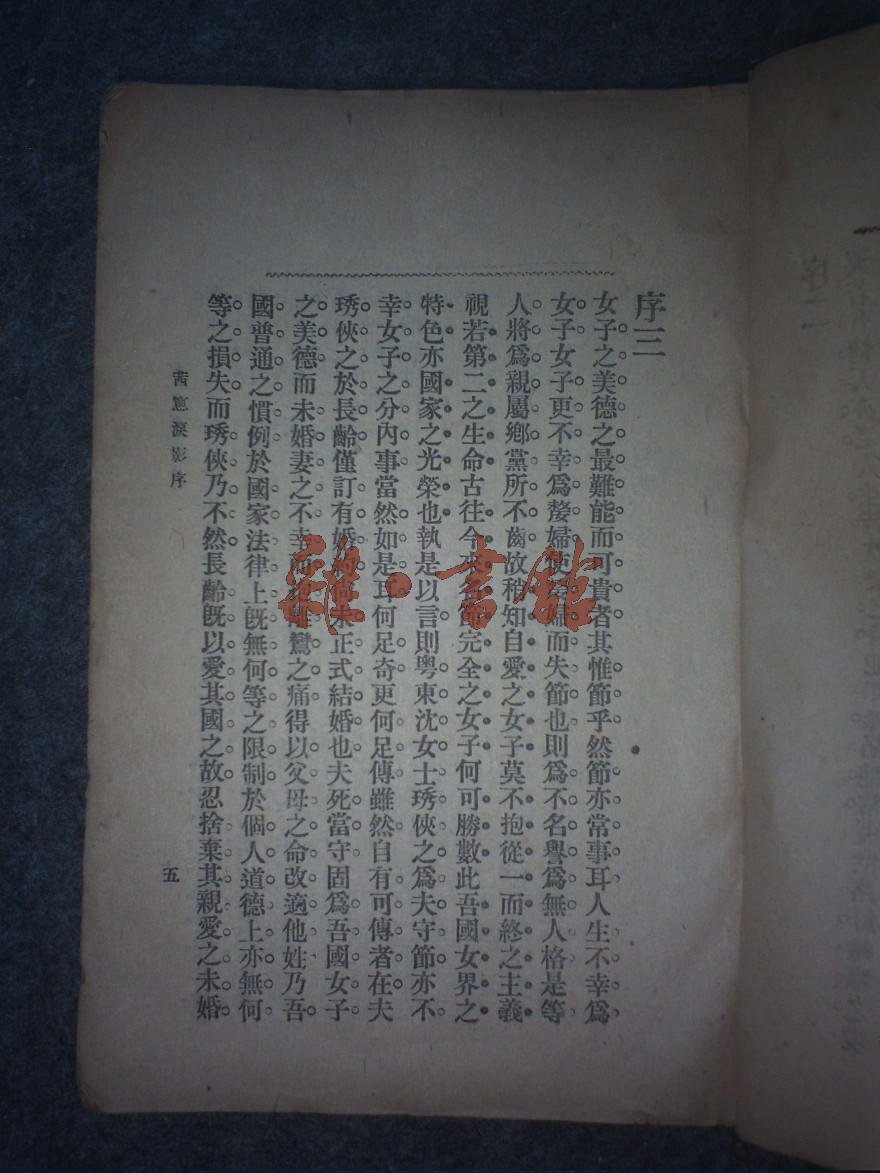 序三
女子之美德之最難能而可貴者其惟節乎然節亦常事耳人生不幸爲
女子女子更不幸爲嫠婦使嫠婦而失節也則爲不名譽爲無人格是等
人將爲親屬鄉黨所不齒故稍知自愛之女子莫不抱從一而終之主義
視若第二之生命古往今來名節完全之女子何可勝數此吾國女界之
特色亦國家之光榮也執是以言則粵東沈女士琇俠之爲夫守節亦不
幸女子之分內事當然如是耳何足奇更何足傳雖然自有可傳者在夫
琇俠之於長齡僅訂有婚約尚未正式結婚也夫死當守固爲吾國女子
之美德而未婚妻之不幸而抱離鸞之痛得以父母之命改適他姓乃吾
國普通之慣例於國家法律上既無何等之限制於個人道德上亦無何
等之損失而琇俠乃不然長齡既以愛其國之故忍捨棄其親愛之未婚
茜窗淚影序
五
雜·書館